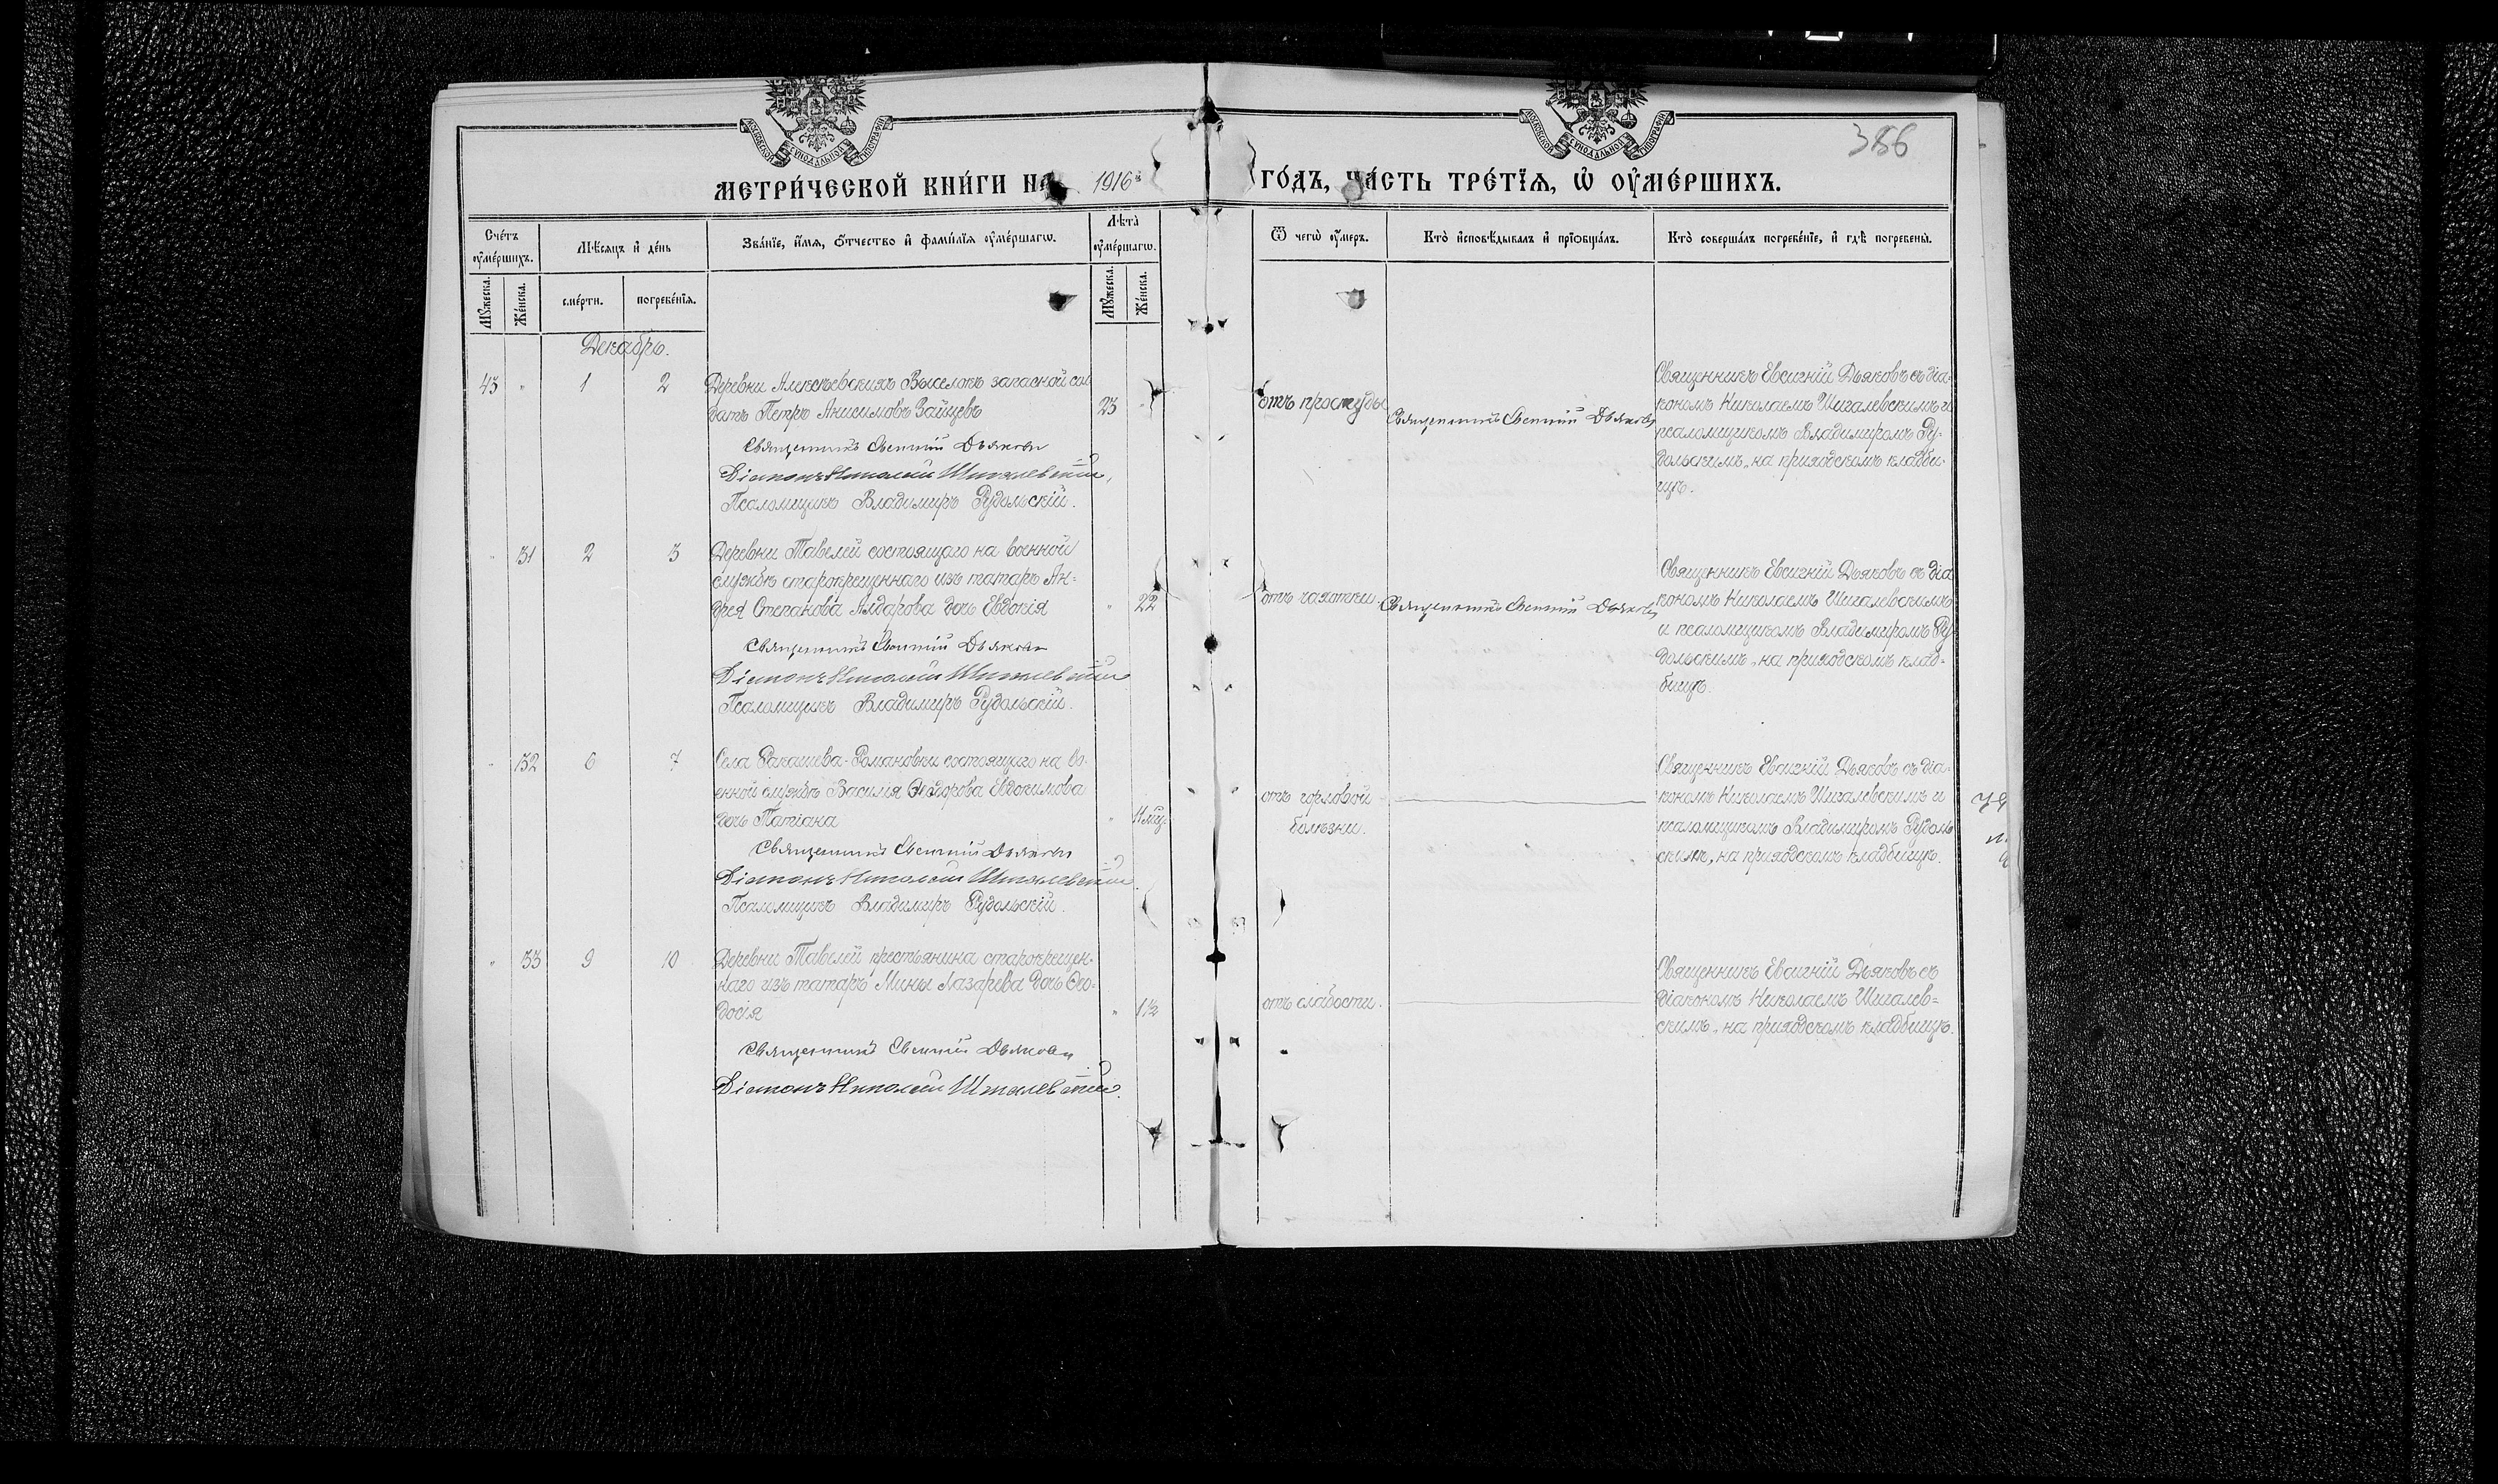 386
МЕТРИ́ЧЕСКОЙ КНИ́ГИ НА 1916й ГО́ДЪ, ЧА́СТЬ ТРЕ́ТЇѦ, Ѡ҆ ОУ҆МЕ́РШИХЪ.
Сче́тъ оу҆ме́ршихъ.
Мѣ́сяцъ и҆ де́нь
Зва́нїе, и҆́мя, ѻ҆́тчество и҆ фами́лїя оу҆ме́ршагѡ.
Лѣ́та оу҆ме́ршагѡ.
Ѿ чегѡ̀ оу҆́меръ.
Кто̀ и҆сповѣ́дывалъ и҆ прїѡбща́лъ.
Кто̀ соверша́лъ погребе́нїе, и҆ гдѣ̀ погребены̀.
Мꙋ́жеска.
Же́нска.
сме́рти.
погребе́нїя.
Мꙋ́жеска.
Же́нска.
Декабрь.
43 " 1 2
Деревни Алексѣевскихъ Выселокъ запасной сол
датъ Петръ Анисимовъ Зайцевъ
23 "
Священникъ Евсигній Дьяковъ
Діаконъ Николай Шигалевскій,
Псаломщикъ Владиміръ Рудольскій.
отъ простуды
Священникъ Евсигній Дьяковъ
Священникъ Евсигній Дьяковъ съ діа-
кономъ Николаемъ Шигалевскимъ и
псаломщикомъ Владиміромъ Ру-
дольскимъ, на приходскомъ кладби-
щѣ.
" 31 2 3
Деревни Тавелей состоящаго на военной
службѣ старокрещеннаго изъ татаръ Ан=
дрея Степанова Алдарова дочь Евдокія
" 22
Священникъ Евсигній Дьяковъ
Діаконъ Николай Шигалевскій
Псаломщикъ Владиміръ Рудольскій.
отъ чахотки.
Священникъ Евсигній Дьяковъ
Священникъ Евсигній Дьяковъ съ діа
кономъ Николаемъ Шигалевскимъ
и псаломщикомъ Владиміромъ Ру
дольскимъ, на приходскомъ клад-
бищѣ.
" 32 6 7
Села Ракашева-Романовки состоящаго на во-
енной службѣ Василія Ѳедорова Евдокимова
дочь Татіана
" 11 мц.
Священникъ Евсигній Дьяковъ
Діаконъ Николай Шигалевскій.
Псаломщикъ Владиміръ Рудольскій.
отъ горловой
болѣзни.
Священникъ Евсигній Дьяковъ съ діа-
кономъ Николаемъ Шигалевскимъ и
псаломщикомъ Владиміромъ Рудоль
скимъ, на приходскомъ кладбищѣ.
" 33 9 10
Деревни Тавелей крестьянина старокрещен-
наго изъ татаръ Мины Лазарева дочь Ѳео-
досія
" 1 1/2
Священникъ Евсигній Дьяковъ
Діаконъ Николай Шигалевскій.
отъ слабости.
Священникъ Евсигній Дьяковъ съ
діакономъ Николаемъ Шигалев=
скимъ, на приходскомъ кладбищѣ.